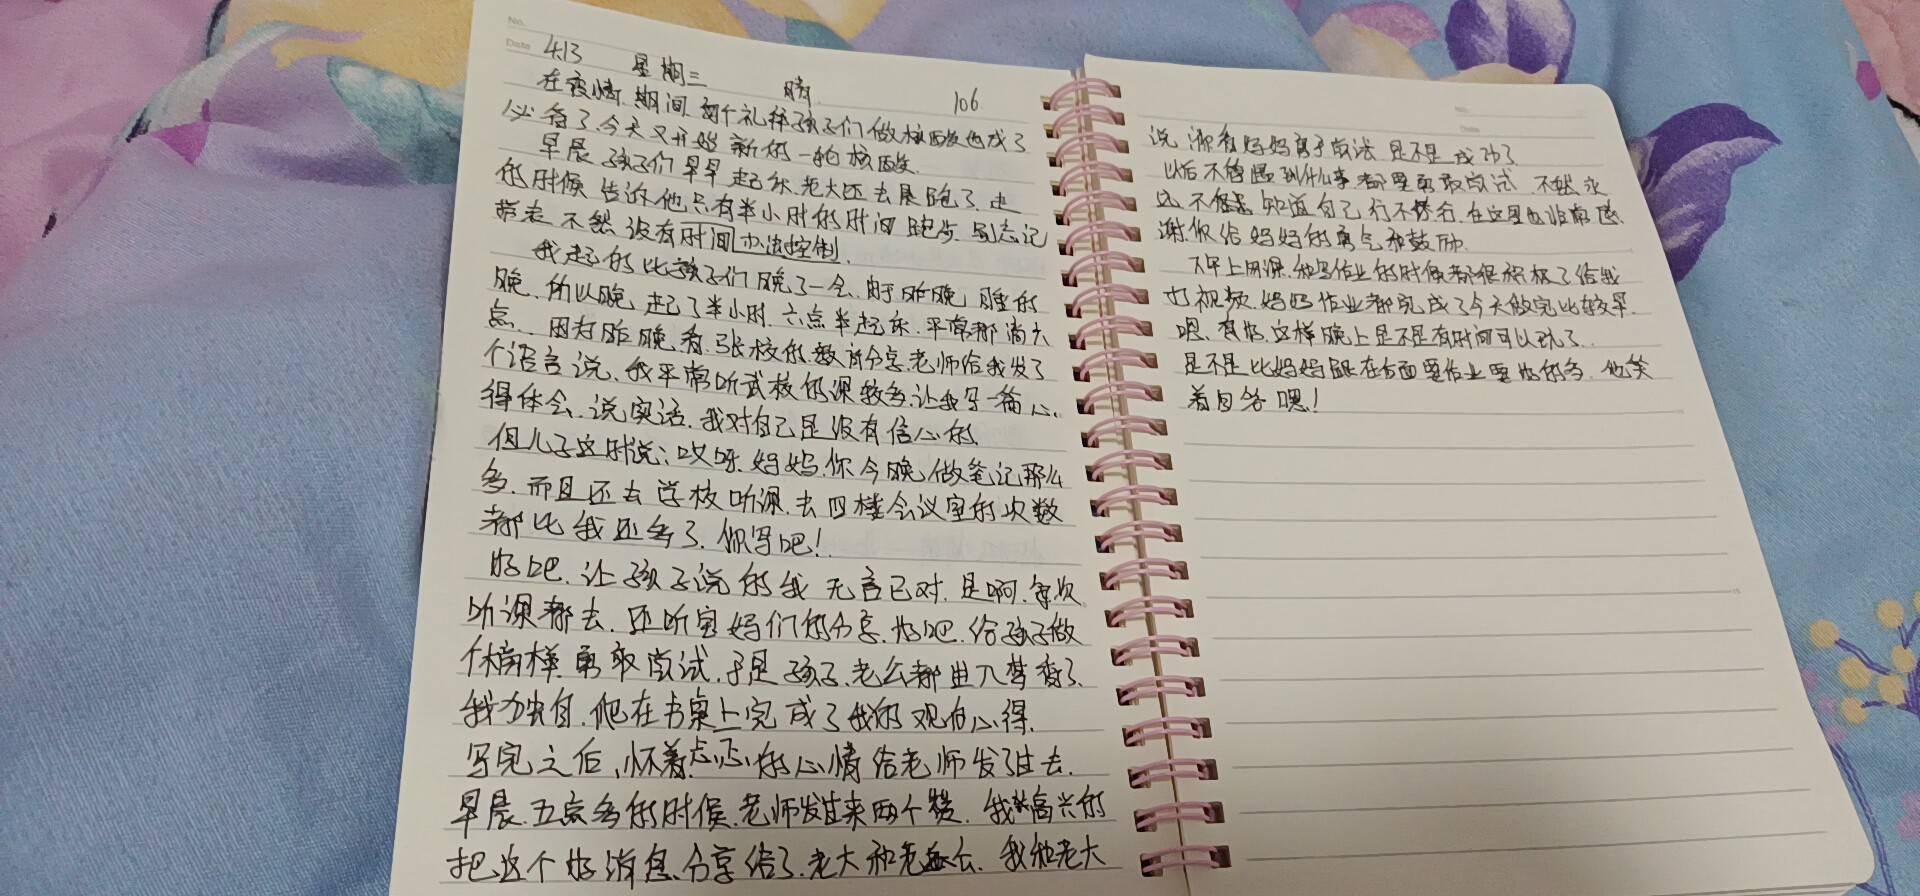 No.
Date 4.13 星期三 晴 106
在疫情.期间.每个礼拜孩子们做核酸也成了
必备了.今天又开始新的一轮核酸.
早晨.孩子们早早起床.老大还去晨跑了.走
的时候告诉他.只有半小时的时间跑步.别忘记
带表.不然没有时间办法控制.
我起的比孩子们晚了一会.由于昨晚睡的
晚.所以晚起了半小时.六点半起床.平常都满六
点.因为昨晚.看.张校的.教育分享.老师给我发了
个语言说.我平常听武校的课较多.让我写一篇心
得体会.说实话.我对自己是没有信心的.
但儿子这时说:哎呀.妈妈.你今晚做笔记那么
多.而且还去学校听课.去四楼会议室的次数
都比我还多了.你写吧!
好吧.让孩子说的我无言已对.是啊.每次
听课都去.还听宝妈们的分享.好吧.给孩子做
个榜样.勇敢尝试.于是孩子.老公都进入梦香了.
我独自.爬在书桌上完成了我的观后心得.
写完之后,怀着忐忑的心情给老师发了过去.
早晨.五点多的时候.老师发过来两个赞.我高兴的
把这个好消息.分享给了.老大和老公.我和老大
No.
Date
说.你看妈妈勇于尝试.是不是成功了
以后不管遇到什么事.都要勇敢尝试.不然永
远不知道自己行不行.在这里也非常感
谢.你给妈妈的勇气和鼓励.
下午上网课.和写作业的时候都很积极了给我
打视频.妈妈作业都完成了今天做完比较早.
嗯.真好.这样晚上是不是有时间可以玩了.
是不是比妈妈跟在后面要作业要好的多.他笑
着回答嗯!